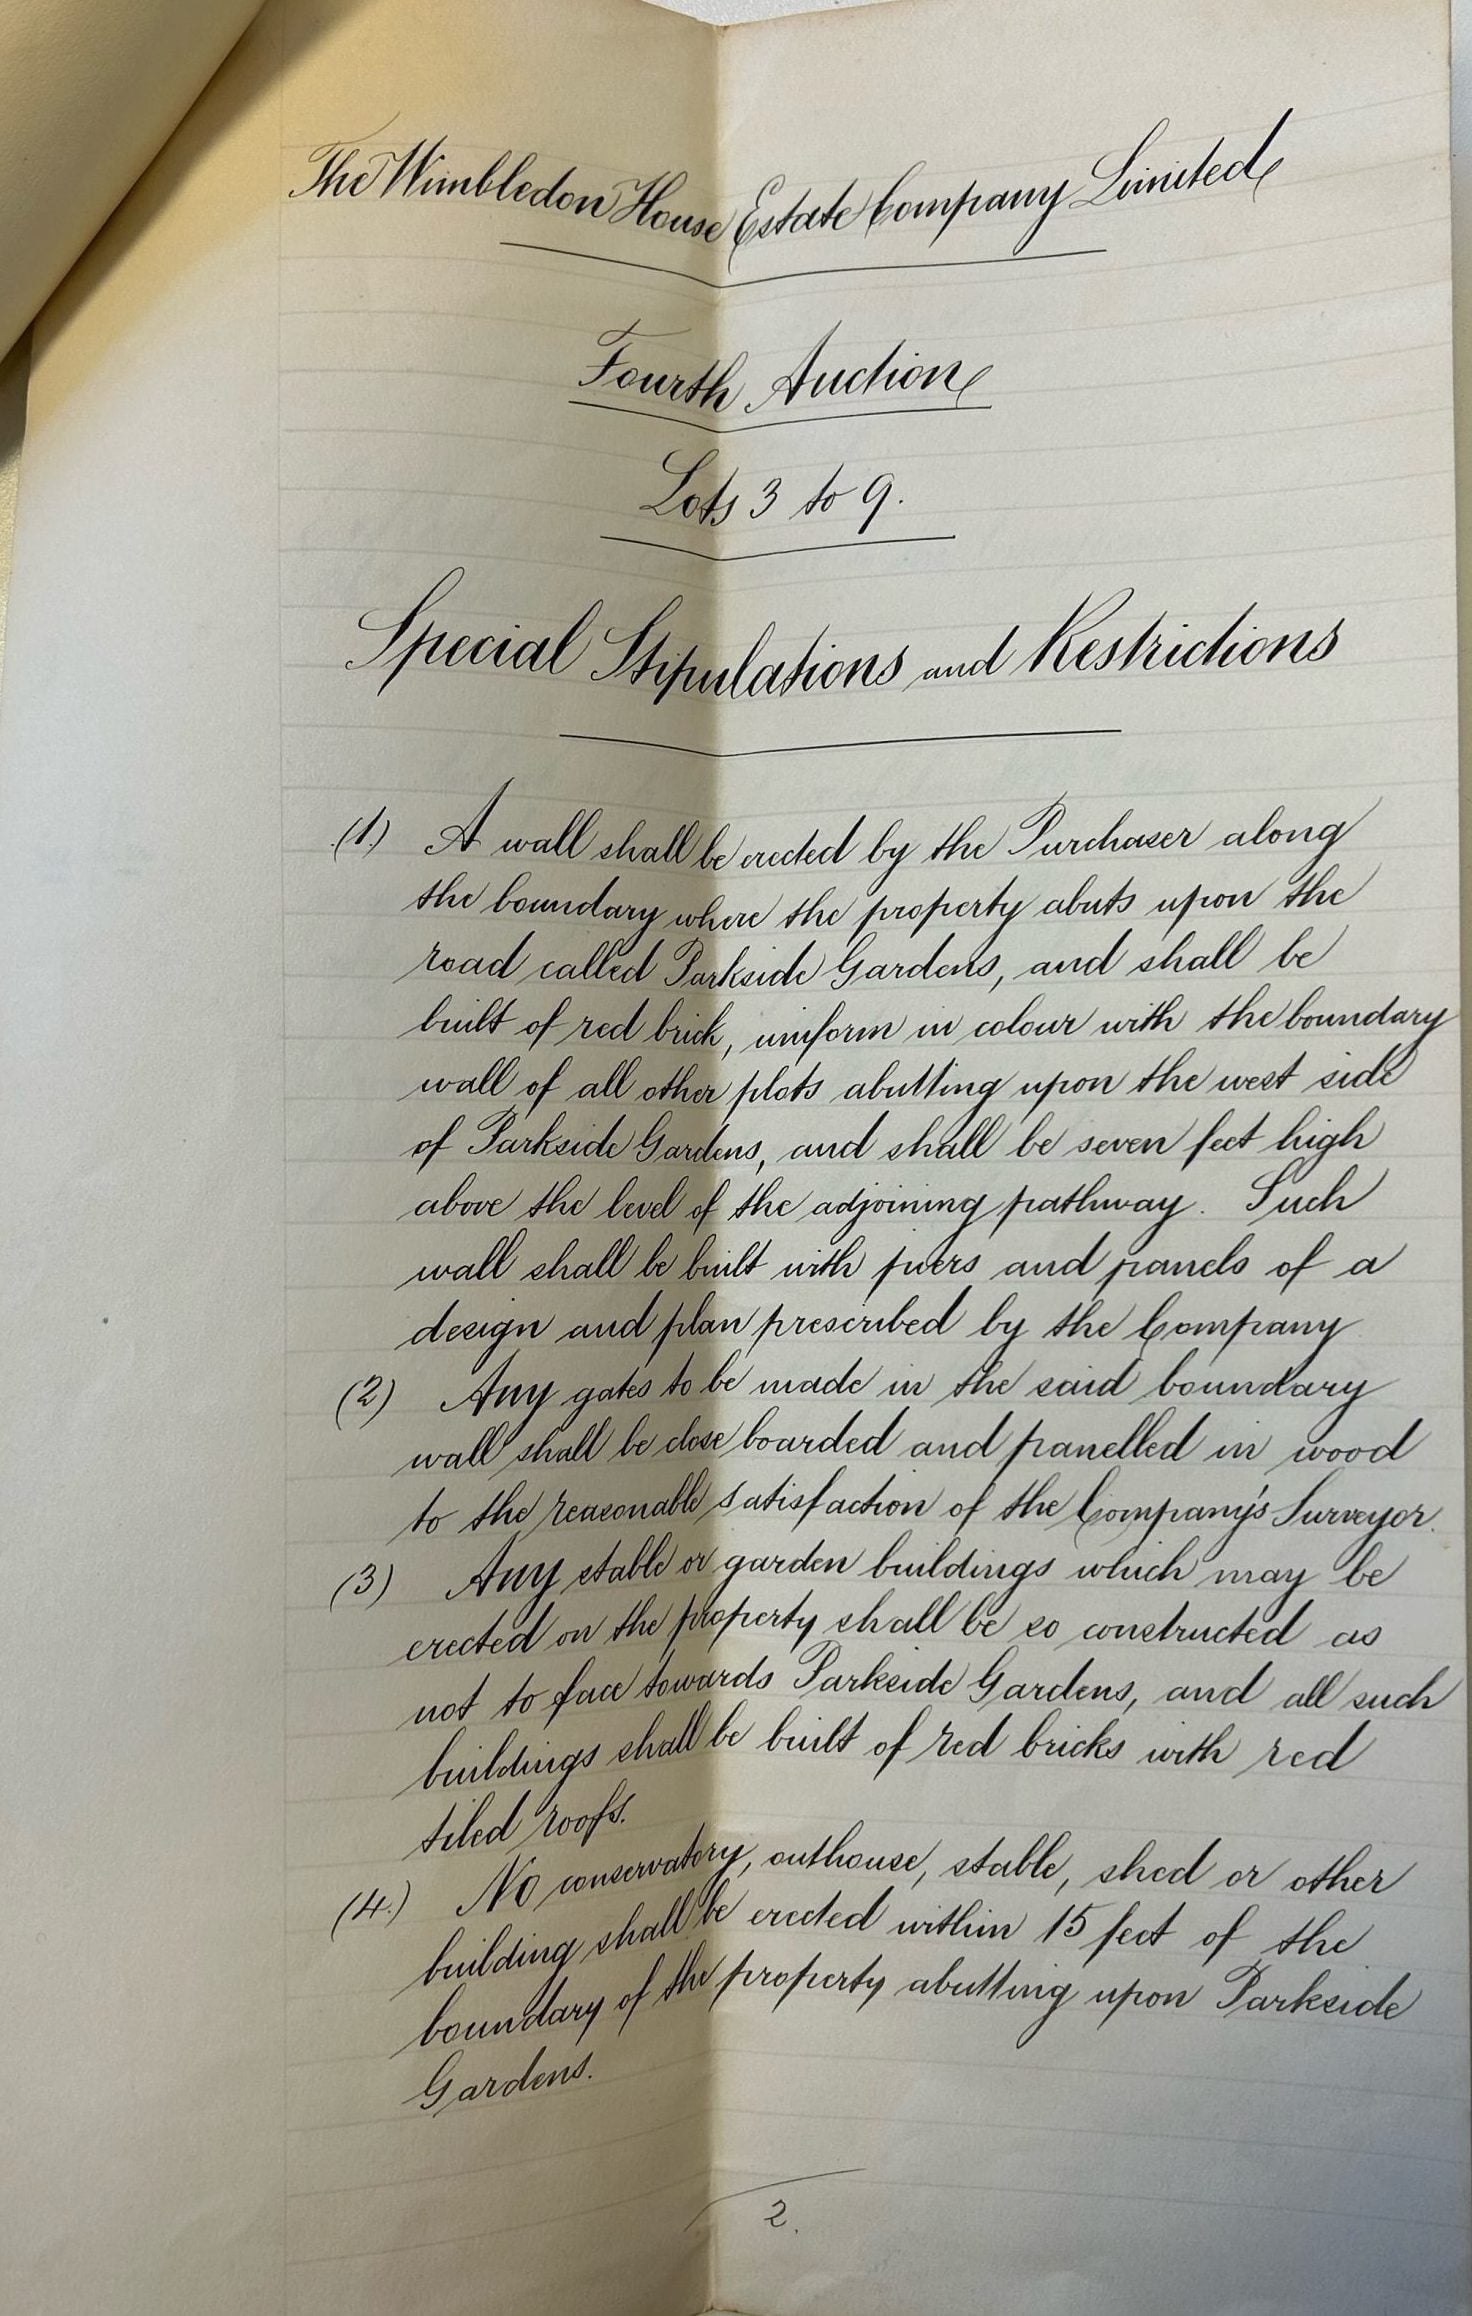 The Wimbledon House Estate Company Limited
Fourth Auction
Lots 3 to 9.
Special Stipulations and Restrictions
(1.) A wall shall be erected by the Purchaser along
the boundary where the property abuts upon the
road called Parkside Gardens, and shall be
built of red brick, uniform in colour with the boundary
wall of all other plots abutting upon the west side
of Parkside Gardens, and shall be seven feet high
above the level of the adjoining pathway. Such
wall shall be built with piers and panels of a
design and plan prescribed by the Company
(2) Any gates to be made in the said boundary
wall shall be close boarded and panelled in wood
to the reasonable satisfaction of the Company's Surveyor.
(3) Any stable or garden buildings which may be
erected on the property shall be so constructed as
not to face towards Parkside Gardens, and all such
buildings shall be built of red bricks with red
tiled roofs.
(4.) No conservatory, outhouse, stable, shed or other
building shall be erected within 15 feet of the
boundary of the property abutting upon Parkside
Gardens.
2.